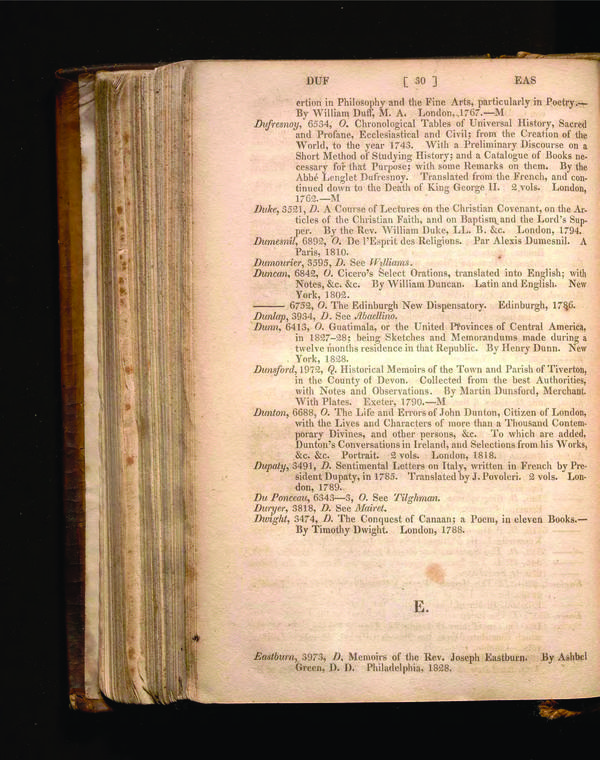 DUF [ 30 ] EAS
ertion in Philosophy and the Fine Arts, particularly in Poetry.—
By William Duff, M. A. London, 1767.—M
Dufresnoy, 6534, O. Chronological Tables of Universal History, Sacred
and Profane, Ecclesiastical and Civil; from the Creation of the
World, to the year 1743. With a Preliminary Discourse on a
Short Method of Studying History; and a Catalogue of Books ne-
cessary for that Purpose; with some Remarks on them. By the
Abbé Lenglet Dufresnoy. Translated from the French, and con-
tinued down to the Death of King George II. 2 vols. London,
1762.—M
Duke, 3521, D. A Course of Lectures on the Christian Covenant, on the Ar-
ticles of the Christian Faith, and on Baptism and the Lord's Sup-
per. By the Rev. William Duke, LL. B. &c. London, 1794.
Dumesnil, 6892, O. De l'Esprit des Religions. Par Alexis Dumesnil. A
Paris, 1810.
Dumourier, 3595, D. See Williams.
Duncan, 6842, O. Cicero's Select Orations, translated into English; with
Notes, &c. &c. By William Duncan. Latin and English. New
York, 1802.
—— 6752, O. The Edinburgh New Dispensatory. Edinburgh, 1786.
Dunlap, 3934, D. See Abaellino.
Dunn, 6413, O. Guatimala, or the United Provinces of Central America,
in 1827-28; being Sketches and Memorandums made during a
twelve months residence in that Republic. By Henry Dunn. New
York, 1828.
Dunsford, 1972, Q. Historical Memoirs of the Town and Parish of Tiverton,
in the County of Devon. Collected from the best Authorities,
with Notes and Observations. By Martin Dunsford, Merchant.
With Plates. Exeter, 1790.—M
Dunton, 6688, O. The Life and Errors of John Dunton, Citizen of London,
with the Lives and Characters of more than a Thousand Contem-
porary Divines, and other persons, &c. To which are added,
Dunton's Conversations in Ireland, and Selections from his Works,
&c. &c. Portrait. 2 vols. London, 1818.
Dupaty, 3491, D. Sentimental Letters on Italy, written in French by Pre-
sident Dupaty, in 1785. Translated by J. Povoleri. 2 vols. Lon-
don, 1789.
Du Ponceau, 6343—3, O. See Tilghman.
Duryer, 3818, D. See Mairet.
Dwight, 3474, D. The Conquest of Canaan; a Poem, in eleven Books.—
By Timothy Dwight. London, 1788.
E.
Eastburn, 3973, D. Memoirs of the Rev. Joseph Eastburn. By Ashbel
Green, D. D. Philadelphia, 1828.